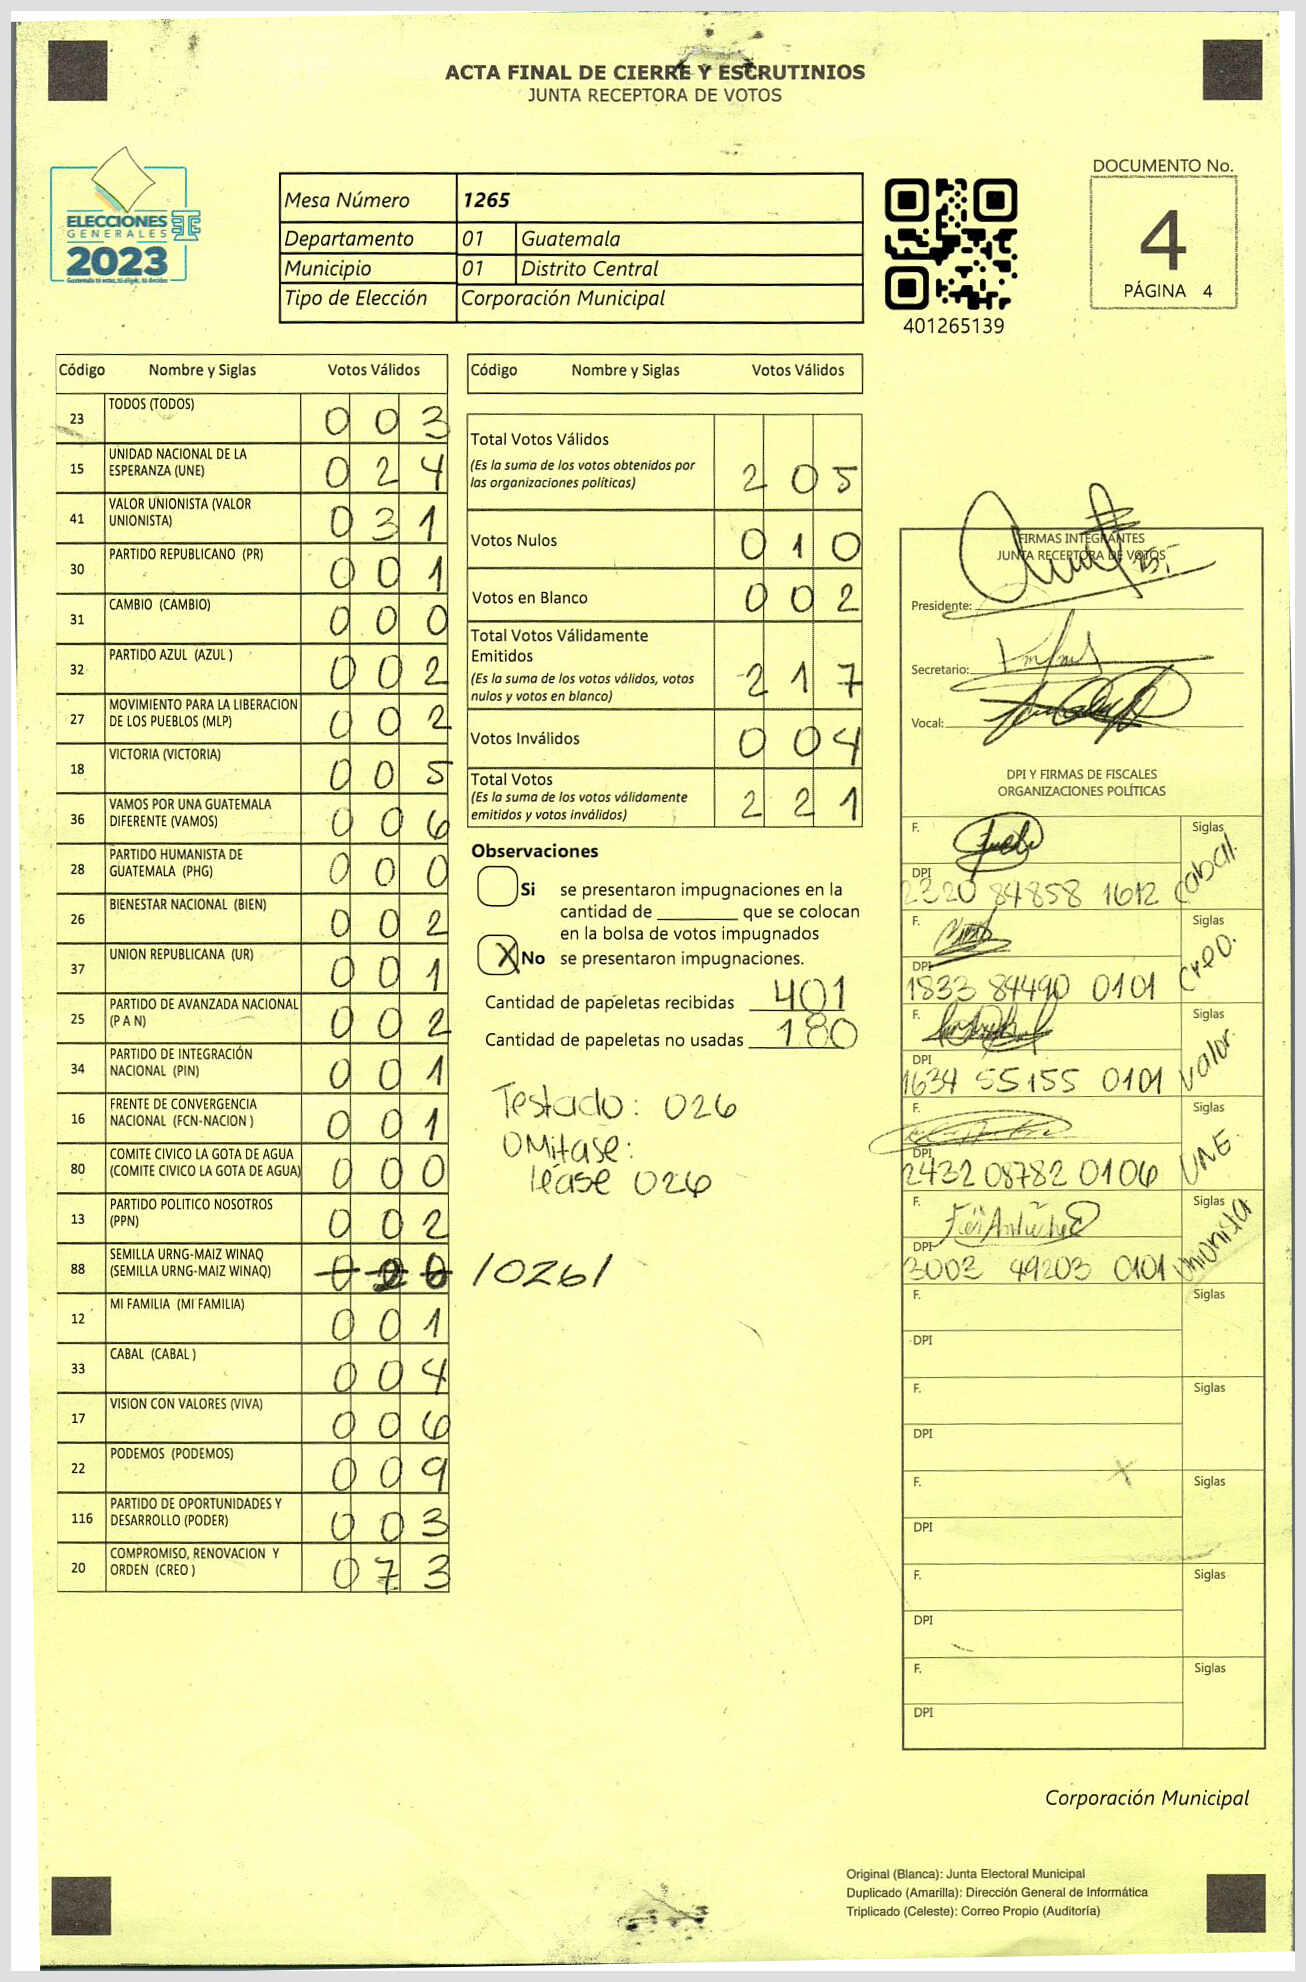 ACTA FINAL DE CIERRE Y ESCRUTINIOS
JUNTA RECEPTORA DE VOTOS
ELECCIONES
GENERALES
2023
Mesa Número 1265
Departamento 01 Guatemala
Municipio 01 Distrito Central
Tipo de Elección Corporación Municipal
401265139
DOCUMENTO No.
4
PÁGINA 4
Código Nombre y Siglas Votos Válidos
23 TODOS (TODOS) 0 0 3
15 UNIDAD NACIONAL DE LA ESPERANZA (UNE) 0 2 4
41 VALOR UNIONISTA (VALOR UNIONISTA) 0 3 1
30 PARTIDO REPUBLICANO (PR) 0 0 1
31 CAMBIO (CAMBIO) 0 0 0
32 PARTIDO AZUL (AZUL ) 0 0 2
27 MOVIMIENTO PARA LA LIBERACION DE LOS PUEBLOS (MLP) 0 0 2
18 VICTORIA (VICTORIA) 0 0 5
36 VAMOS POR UNA GUATEMALA DIFERENTE (VAMOS) 0 0 6
28 PARTIDO HUMANISTA DE GUATEMALA (PHG) 0 0 0
26 BIENESTAR NACIONAL (BIEN) 0 0 2
37 UNION REPUBLICANA (UR) 0 0 1
25 PARTIDO DE AVANZADA NACIONAL (P A N) 0 0 2
34 PARTIDO DE INTEGRACIÓN NACIONAL (PIN) 0 0 1
16 FRENTE DE CONVERGENCIA NACIONAL (FCN-NACION ) 0 0 1
80 COMITE CIVICO LA GOTA DE AGUA (COMITE CIVICO LA GOTA DE AGUA) 0 0 0
13 PARTIDO POLITICO NOSOTROS (PPN) 0 0 2
88 SEMILLA URNG-MAIZ WINAQ (SEMILLA URNG-MAIZ WINAQ) 0 2 6 /026/
12 MI FAMILIA (MI FAMILIA) 0 0 1
33 CABAL (CABAL ) 0 0 4
17 VISION CON VALORES (VIVA) 0 0 6
22 PODEMOS (PODEMOS) 0 0 9
116 PARTIDO DE OPORTUNIDADES Y DESARROLLO (PODER) 0 0 3
20 COMPROMISO, RENOVACION Y ORDEN (CREO ) 0 7 3
Código Nombre y Siglas Votos Válidos
Total Votos Válidos
(Es la suma de los votos obtenidos por
las organizaciones políticas) 2 0 5
Votos Nulos 0 1 0
Votos en Blanco 0 0 2
Total Votos Válidamente
Emitidos
(Es la suma de los votos válidos, votos
nulos y votos en blanco) 2 1 7
Votos Inválidos 0 0 4
Total Votos
(Es la suma de los votos válidamente
emitidos y votos inválidos) 2 2 1
Observaciones
Si se presentaron impugnaciones en la
cantidad de ________ que se colocan
en la bolsa de votos impugnados
X No se presentaron impugnaciones.
Cantidad de papeletas recibidas 401
Cantidad de papeletas no usadas 180
Testado: 026
OMitase:
léase 026
FIRMAS INTEGRANTES
JUNTA RECEPTORA DE VOTOS
Presidente:
Secretario:
Vocal:
DPI Y FIRMAS DE FISCALES
ORGANIZACIONES POLÍTICAS
F. Siglas
DPI 2320 84858 1612 Cabal.
F. Siglas
DPI 1833 84490 0101 Creo.
F. Siglas
DPI 1634 55155 0101 Valor.
F. Siglas
DPI 2432 08782 0106 UNE.
F. Siglas
DPI 3003 49203 0101 Unionista
F. Siglas
DPI
F. Siglas
DPI
F. Siglas
DPI
F. Siglas
DPI
F. Siglas
DPI
Corporación Municipal
Original (Blanca): Junta Electoral Municipal
Duplicado (Amarilla): Dirección General de Informática
Triplicado (Celeste): Correo Propio (Auditoría)